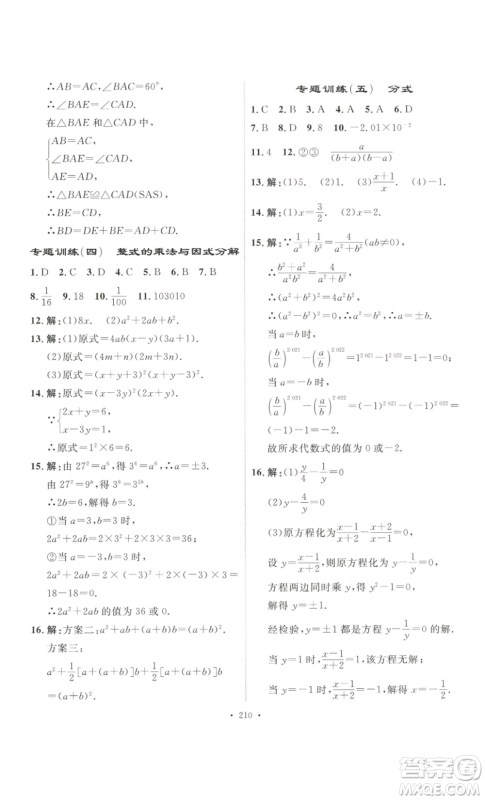 ∴AB=AC,∠BAC=60°,
∴∠BAE=∠CAD.
在△ABE和△ACD中,
{AB=AC,
∠BAE=∠CAD,
AE=AD,
∴△ABE≌△ACD(SAS).
∴BE=CD.
∴BD=DE+BE=AD+CD.
专题训练(四) 整式的乘法与因式分解
1.D 2.C 3.D 4.B 5.B 6.B 7.D
8.1/16 9.18 10.1/100 11.103010
12.解:(1)8x. (2)a²+2ab+2b².
13.解:(1)原式=4ab(x-y)(3a+1).
(2)原式=(4m+n)(2m+3n).
14.解:原式=(x-3y)²(2x+y).
∵{2x+y=6,
x-3y=1,
∴原式=1²×6=6.
15.解:由 27²=a⁶,得 3⁶=a⁶,∴a=±3.
由 27²=9ᵇ,得 3⁶=3²ᵇ,
∴2b=6,解得 b=3.
①当 a=3,b=3 时,
2a²+2ab=2×3²+2×3×3=36.
②当 a=-3,b=3 时,
2a²+2ab=2×(-3)²+2×(-3)×3=
18-18=0.
∴2a²+2ab 的值为 36 或 0.
16.解:方案二:a²+ab+b(a+b)=(a+b)².
方案三:
a²+1/2[a+(a+b)]b+1/2[a+(a+b)]b
=(a+b)².
专题训练(五) 分式
1.C 2.B 3.A 4.A 5.C 6.D
7.B 8.D 9.8 10.-2.01×10⁻²
11.4 12.②③ a/((b+a)(b-a))
13.解:(1)5. (2)(x+1)/x.
14.解:(1)x=3/2. (2)无解.
15.解:∵1/a²+1/b²=4/(a²+b²),
∴(a²+b²)/(a²b²)=4/(a²+b²).
∴(a²+b²)²=4a²b².
∴(a²-b²)²=0.
∴a²=b².
∴a=±b.
当 a=b 时,
(b/a)²⁰²¹-(a/b)²⁰²²=1²⁰²¹-1²⁰²²=1-1=0;
当 a=-b 时,
(b/a)²⁰²¹-(a/b)²⁰²²=(-1)²⁰²¹-(-1)²⁰²²
=-1-1=-2.
故所求代数式的值为 0 或-2.
16.解:(1)y/4-1/y=0
(2)y-4/y=0
(3)原方程化为(x-1)/(x+2)-(x+2)/(x-1)=0
设 y=(x-1)/(x+2),则原方程化为 y-1/y=0.
方程两边同时乘 y,得 y²-1=0.
解得 y=±1.
经检验,y=±1 都是方程 y-1/y=0 的解.
当 y=1 时,(x-1)/(x+2)=1,该方程无解;
当 y=-1 时,(x-1)/(x+2)=-1,解得 x=-1/2.
• 210 •
作业精灵